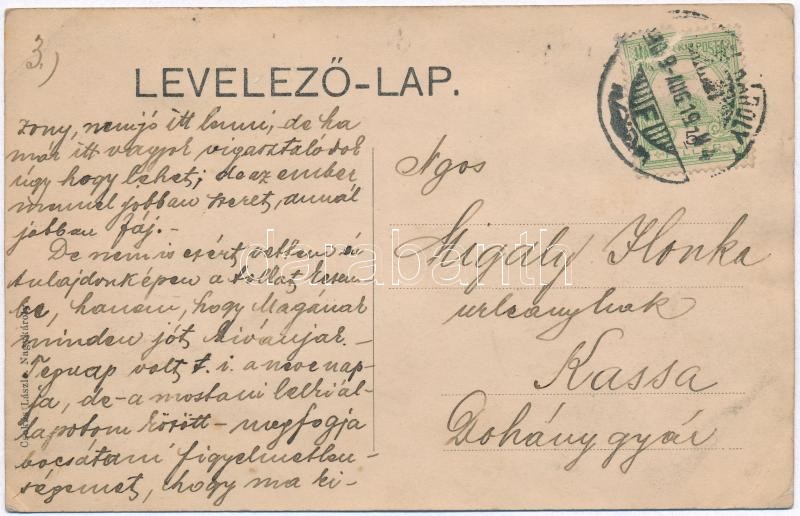 3.)
LEVELEZŐ-LAP.
zony, nem jó itt lenni, de ha
már itt vagyok vigasztalódok
úgy hogy lehet; de az ember
mennél jobban szeret, annál
jobban fáj.-
De nem is ezért vettem én
tulajdonképen a tollat kezem
be, hanem, hogy Magának
minden jót kivánjak.-
Tegnap volt t. i. a neve nap-
ja, de a mostani lelki ál-
lapotom között - megfogja
bocsátani figyelmetlen-
ségemet, hogy ma ki-
Ngos
Migály Ilonka
urleánynak
Kassa
Dohánygyár
László, Nagykároly
darabanth